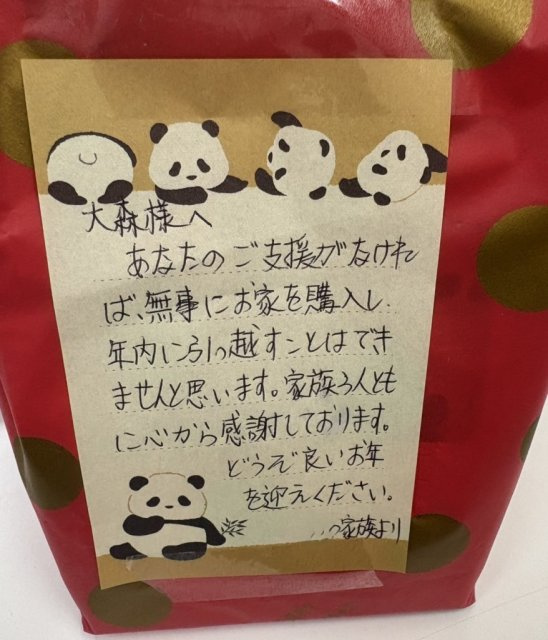 大森様へ
あなたのご支援がなけれ
ば、無事にお家を購入し
年内に引っ越すことはでき
ませんと思います。家族3人とも
に心から感謝しております。
どうぞ良いお年
を迎えください。
家族より